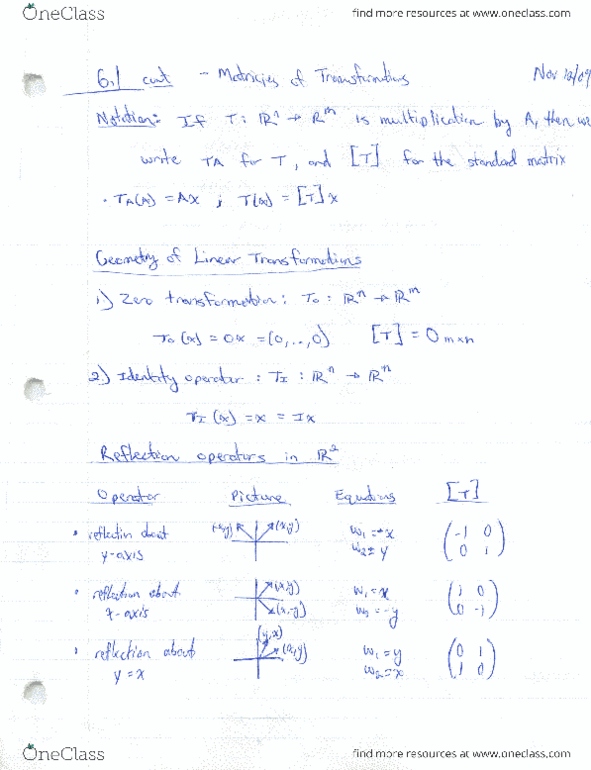 OneClass find more resources at www.oneclass.com
6.1 cont - Matricies of Transformations Nov 12/09
Notation: If T: ℝⁿ → ℝᵐ is multiplication by A, then we
write TA for T, and [T] for the standard matrix
· TA(x) = Ax ; T(x) = [T]x
Geometry of Linear Transformations
1) Zero transformation: T₀: ℝⁿ → ℝᵐ
T₀(x) = 0x = (0,..,0) [T] = 0 m×n
2) Identity operator: T_I: ℝⁿ → ℝⁿ
T_I(x) = x = Ix
Reflection operators in ℝ²
Operator Picture Equations [T]
· reflectin about (-x,y) (x,y) w₁ = -x (-1 0
y-axis w₂ = y 0 1)
· reflection about (x,y) w₁ = x (1 0
x-axis (x,-y) w₂ = -y 0 -1)
(y,x)
· reflection about (x,y) w₁ = y (0 1
y = x w₂ = x 1 0)
OneClass find more resources at www.oneclass.com